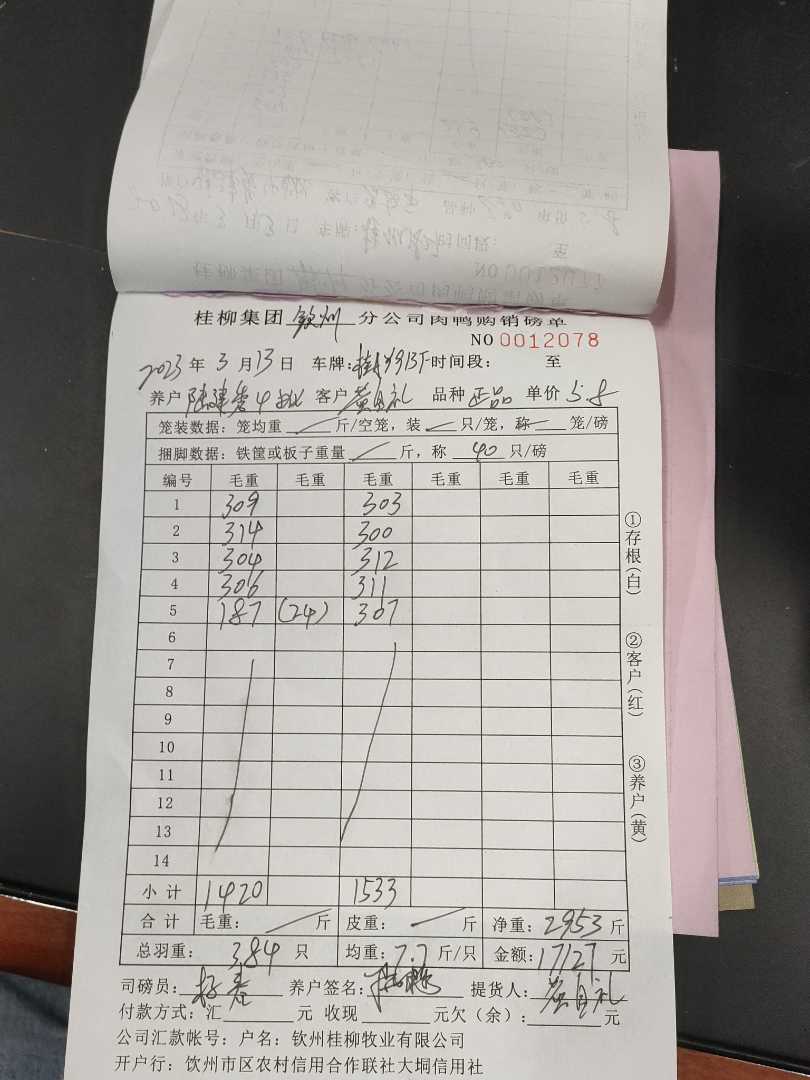 桂柳集团 钦州 分公司肉鸭购销磅单
NO 0012078
2023年3月13日 车牌: 时间段: 至
养户 客户 黄自礼 品种 正品 单价 5.8
笼装数据：笼均重 斤/空笼，装 只/笼，称 笼/磅
捆脚数据：铁筐或板子重量 斤，称 40 只/磅
编号 毛重 毛重 毛重 毛重 毛重 毛重
1 309 303
2 314 300
3 304 312
4 306 311
5 187 (24) 307
6
7
8
9
10
11
12
13
14
小计 1420 1533
合计 毛重： 斤 皮重： 斤 净重：2953 斤
总羽重： 384 只 均重：7.7 斤/只 金额：17127 元
司磅员： 养户签名： 提货人：黄自礼
付款方式：汇 元 收现 元欠（余）： 元
公司汇款帐号：户名：钦州桂柳牧业有限公司
开户行：钦州市区农村信用合作联社大垌信用社
①存根（白）
②客户（红）
③养户（黄）